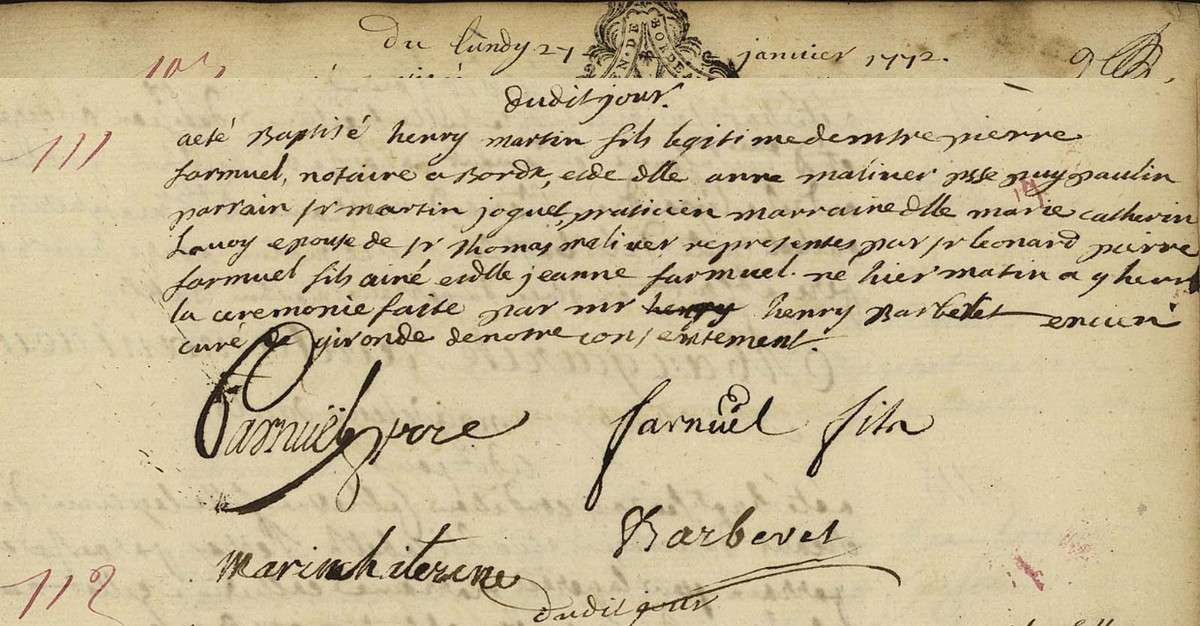 Du lundy 27 janvier 1772.
EN·DE BORDEA
dudit jour.
111
aeté Baptisé henry martin fils legitime dentre pierre
farnuel, notaire a Bordx, et de dlle anne maliver psse puy paulin
parrain sr martin joguet, praticien, marraine dlle marie catherin
Lavoy epouse de sr thomas maliver representes par sr leonard pierre
farnuel fils ainé et dlle jeanne farnuel. né hier matin a 9 heur
la ceremonie faite par mr henry henry Barberet encien
curé de gironde de notre consentement.
farnuël pere farnuël fils
Barberet
112
dudit jour